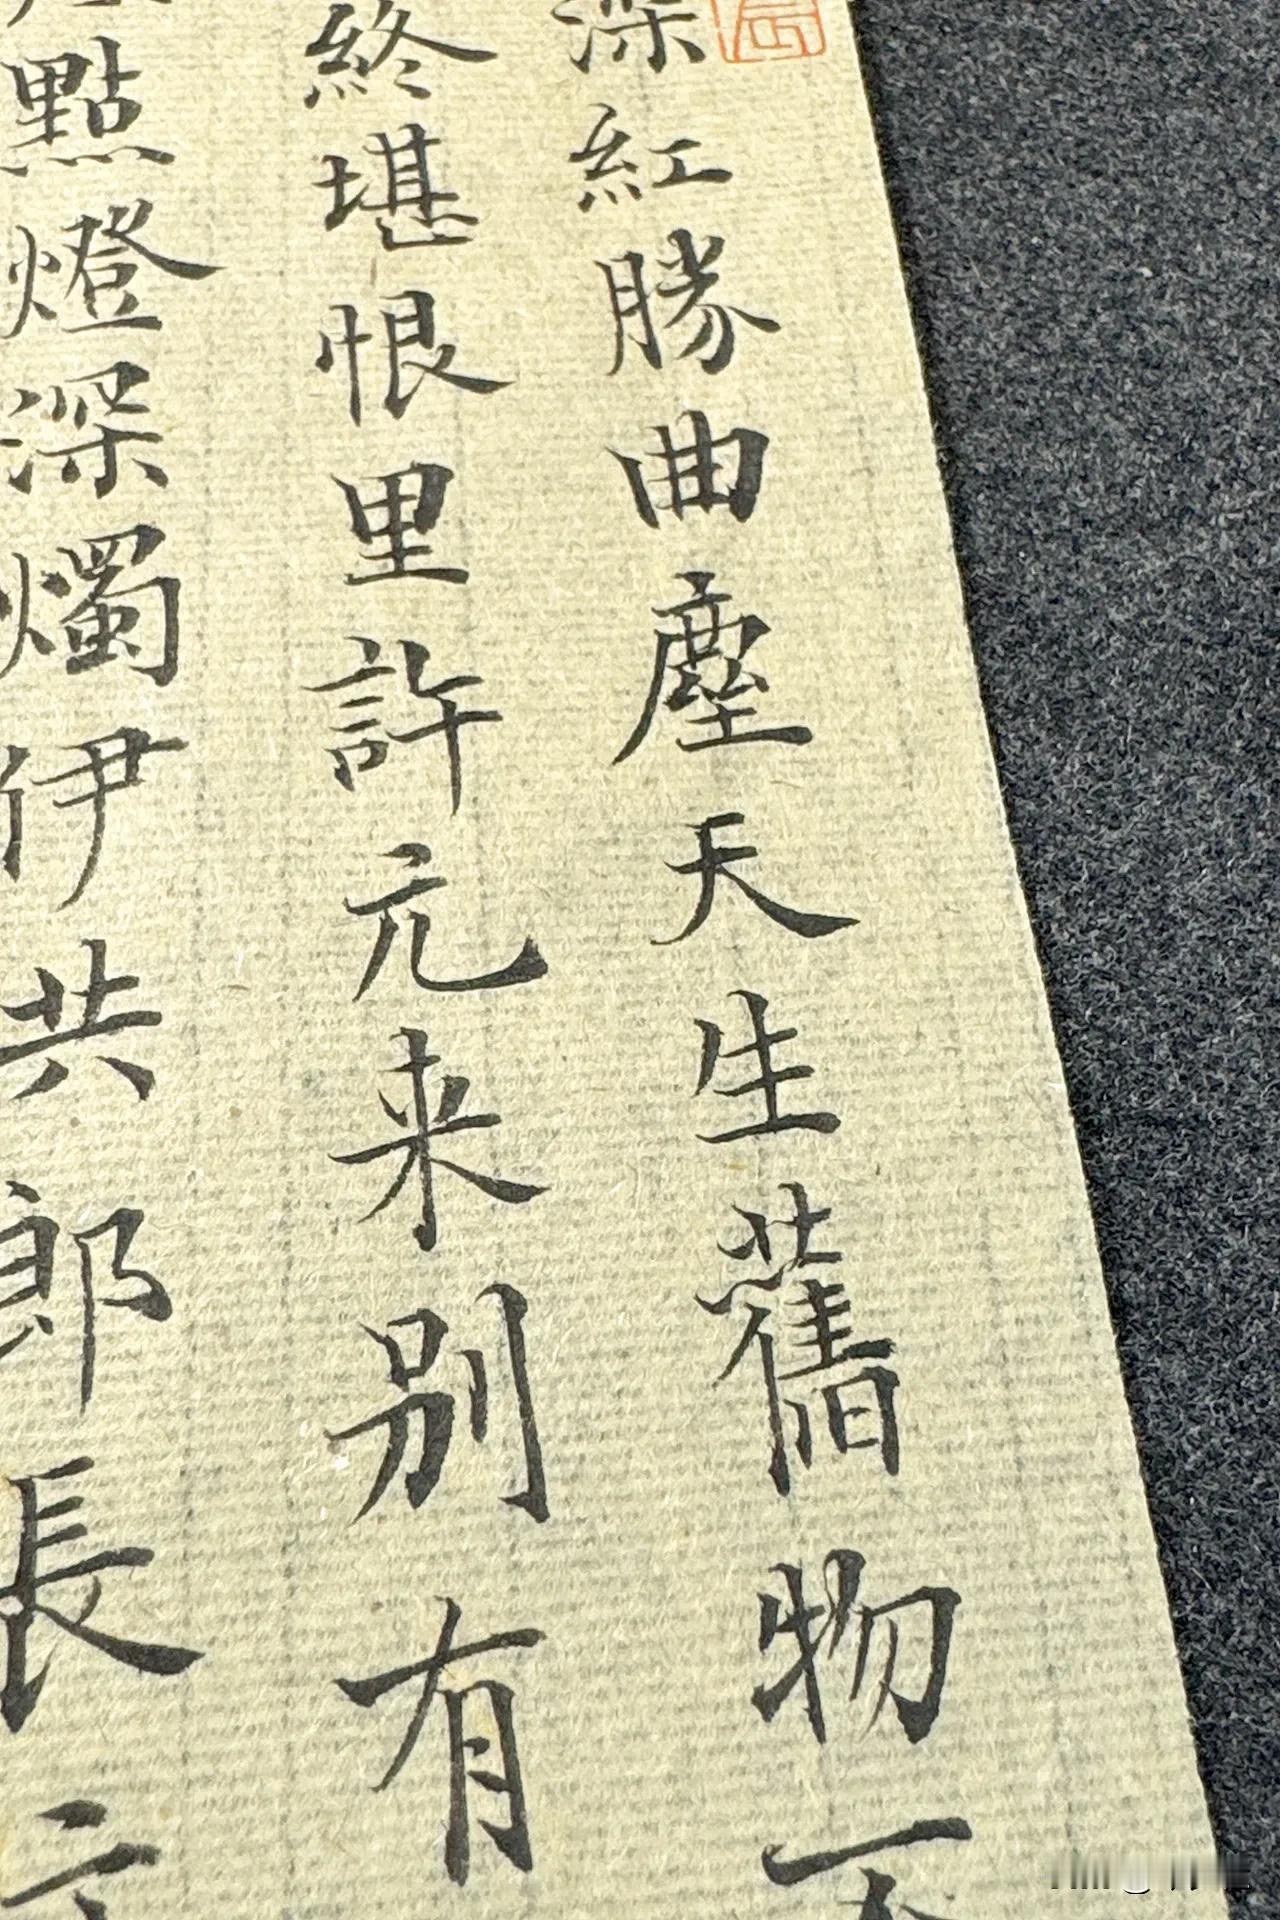 深紅勝曲塵天生舊物不
終堪恨里許元来别有
點燈深燭伊共郎長